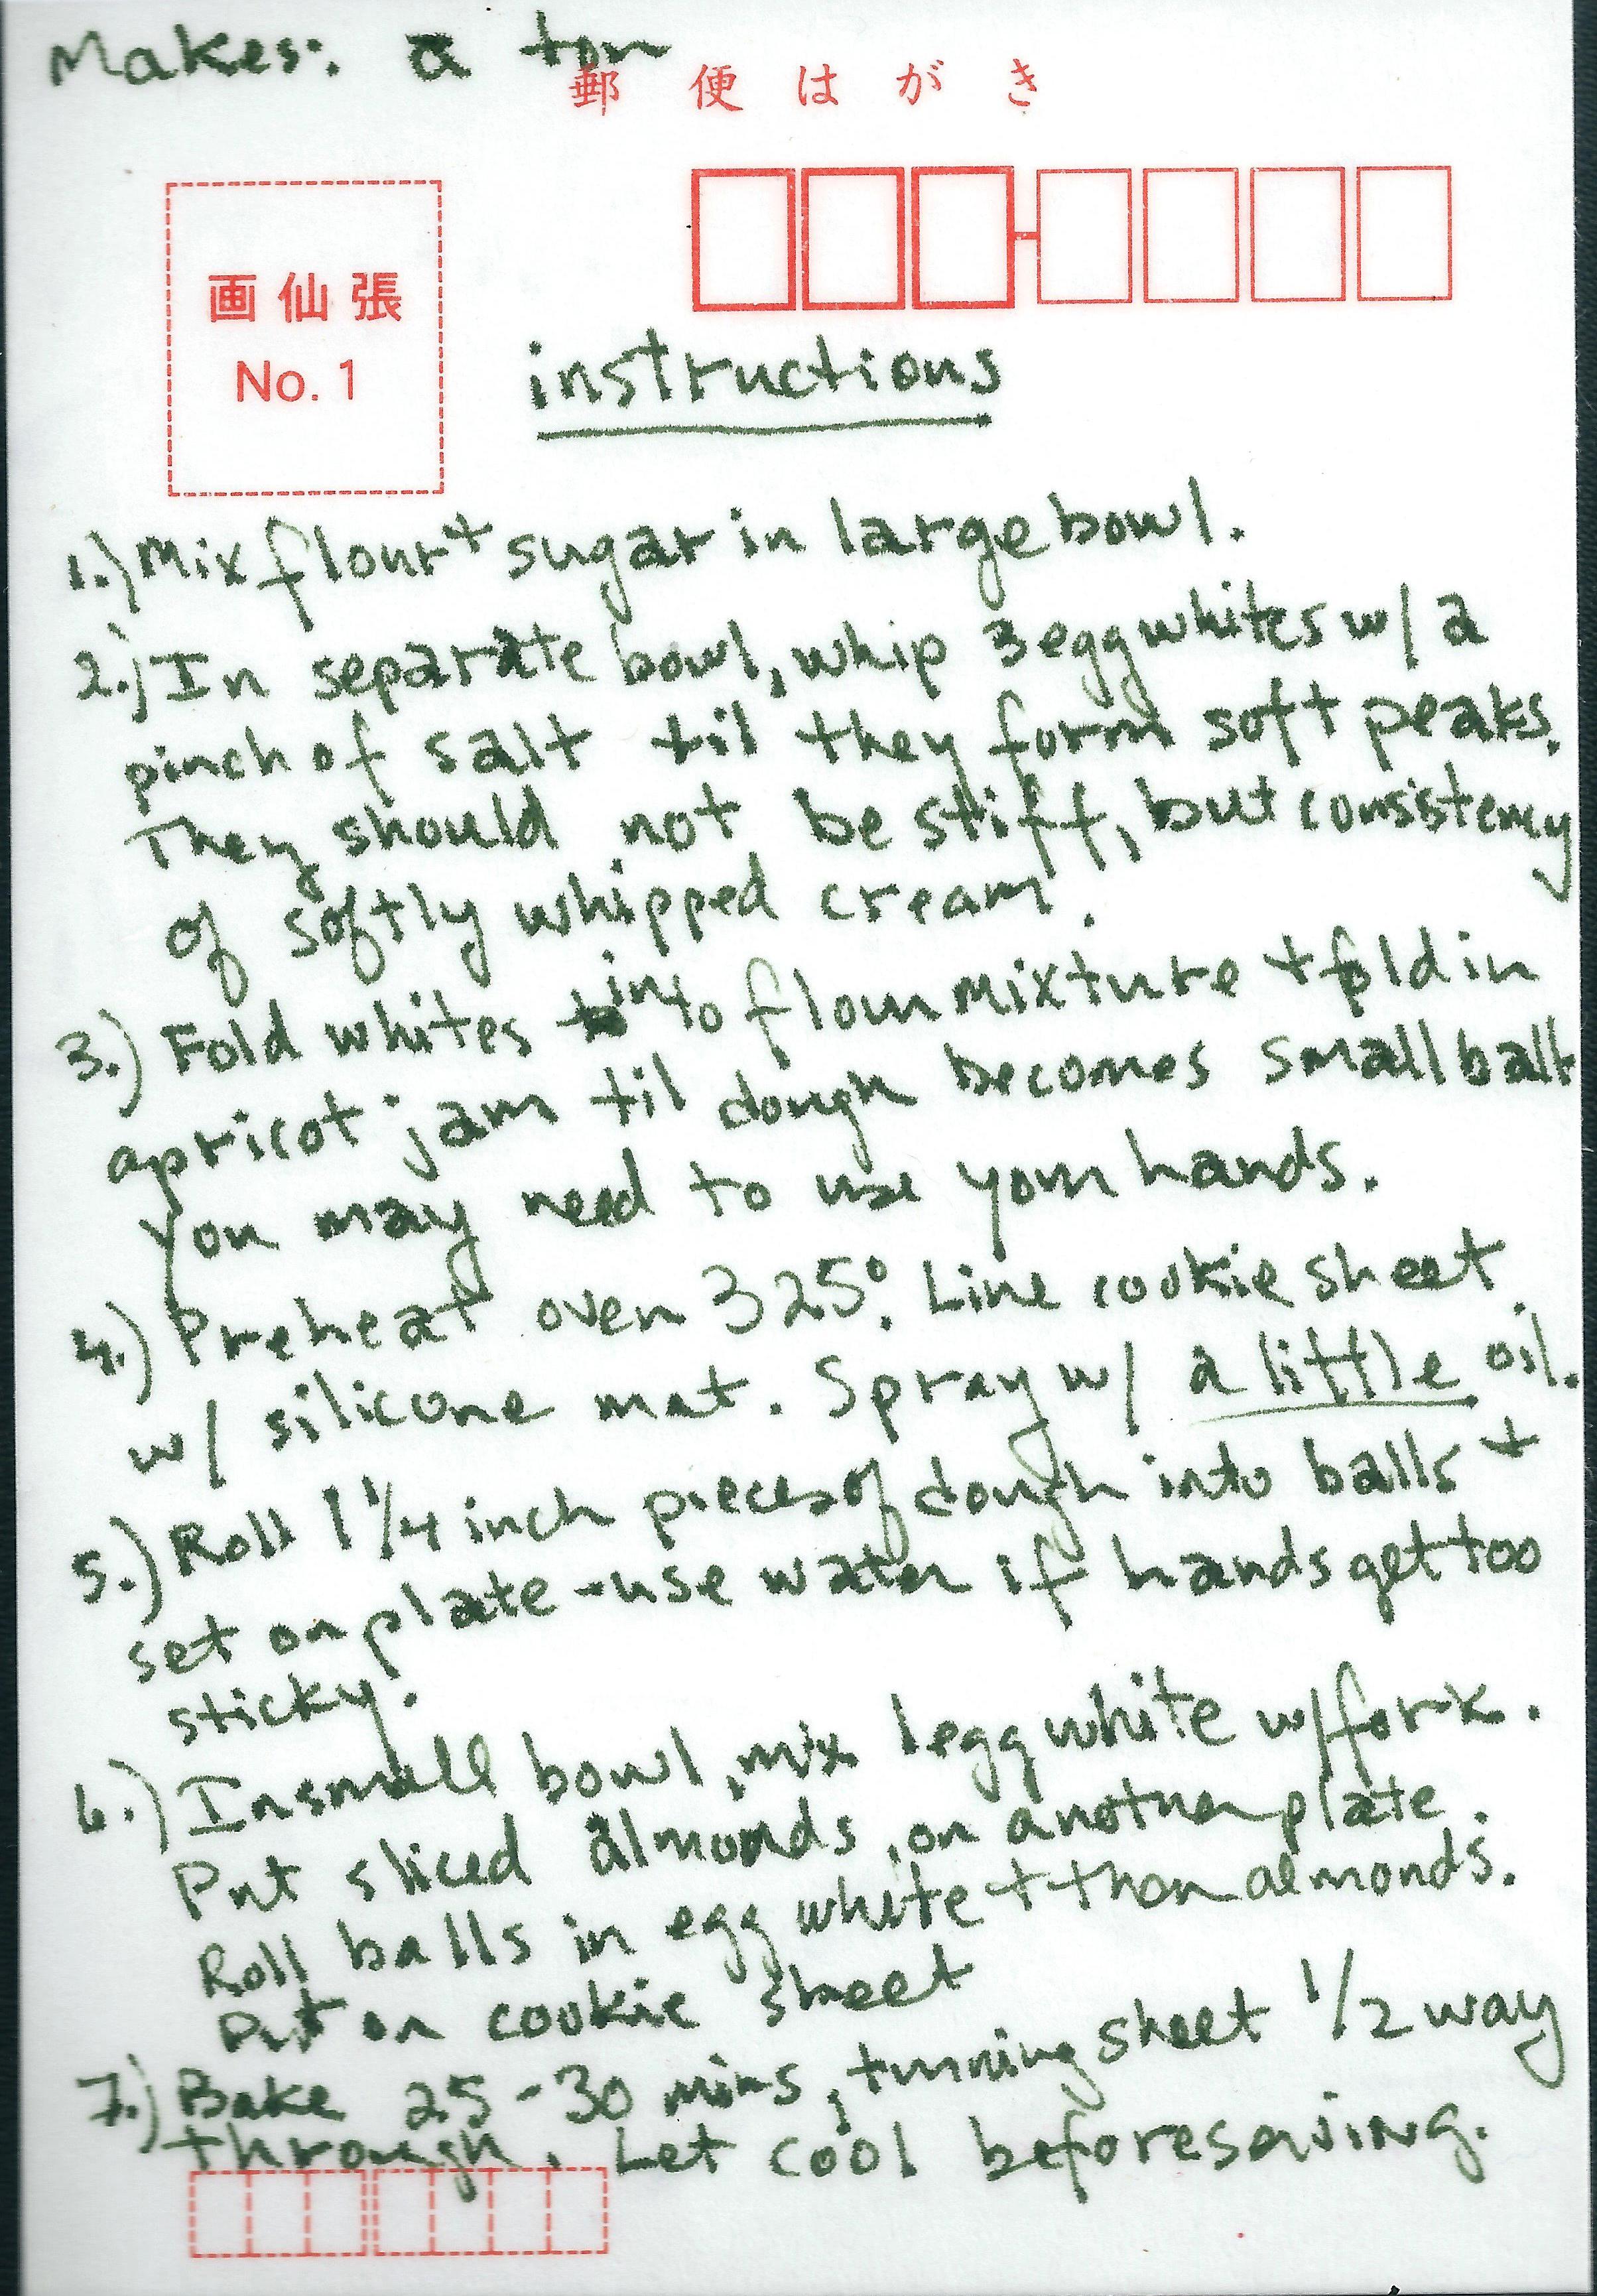 Makes: a ton
郵便はがき
画仙張
No. 1
instructions
1.) Mix flour + sugar in large bowl.
2.) In separate bowl, whip 3 egg whites w/ a
pinch of salt til they form soft peaks.
They should not be stiff, but consistency
of softly whipped cream.
3.) Fold whites into flour mixture + fold in
apricot jam til dough becomes small ball
You may need to use your hands.
4.) Preheat oven 325°. Line cookie sheet
w/ silicone mat. Spray w/ a little oil.
5.) Roll 1 1/4 inch pieces of dough into balls +
set on plate - use water if hands get too
sticky.
6.) In small bowl, mix 1 egg white w/ fork.
Put sliced almonds on another plate.
Roll balls in egg white + then almonds.
Put on cookie sheet
7.) Bake 25-30 mins, turning sheet 1/2 way
through. Let cool before serving.